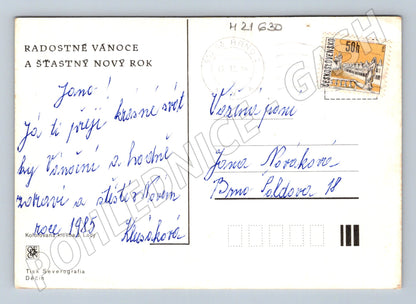 H 21 630
RADOSTNÉ VÁNOCE
A ŠŤASTNÝ NOVÝ ROK
50h
ČESKOSLOVENSKO
TELČ
Jano!
Já ti přeji krásné svát
ky Vánoční a hodně
zdraví a štěstí v Novém
roce 1985 Klusáková
Vážená paní
Jana Nováková
Brno Soldova 18
Tisk Severografia
Děčín
POHLEDNICE - GASH